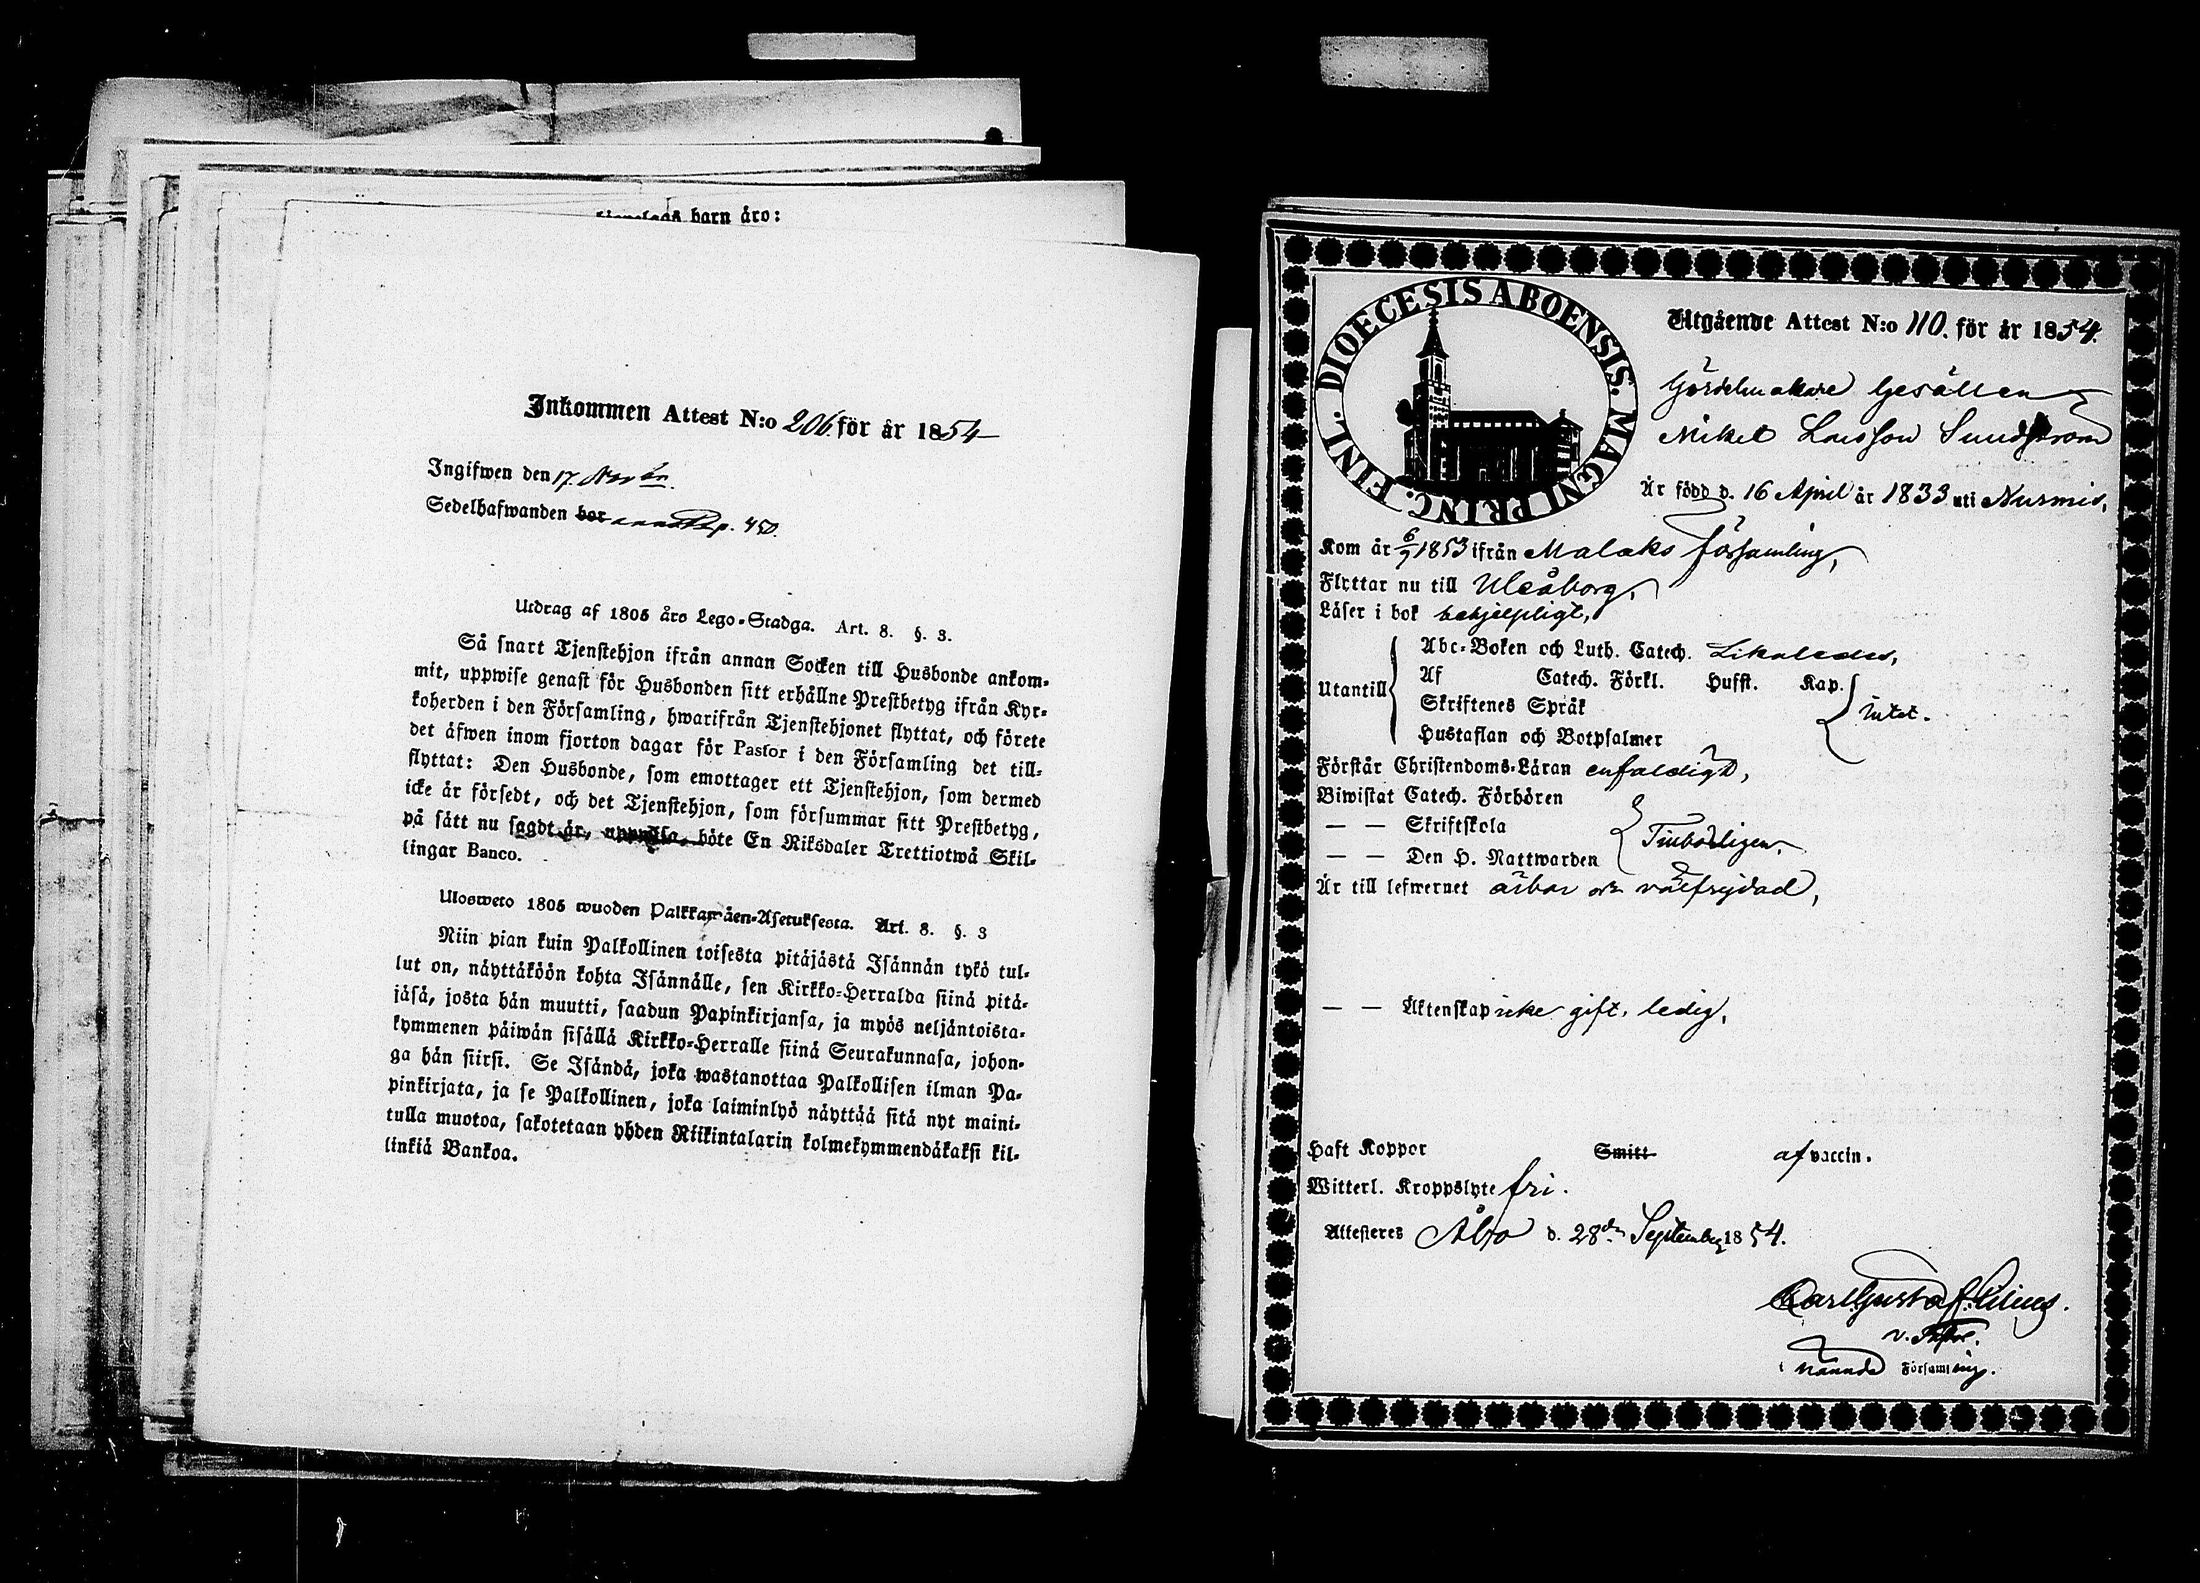 barn äro:
Inkommen Attest N:o 206. för år 1854
Ingifwen den 17. Novbr.
Sedelhafwanden bor p. 450.
Utdrag af 1805 års Lego-Stadga. Art. 8. §. 3.
Så snart Tjenstehjon ifrån annan Socken till Husbonde ankom-
mit, uppwise genast för Husbonden sitt erhållne Prestbetyg ifrån Kyr-
koherden i den Församling, hwarifrån Tjenstehjonet flyttat, och förete
det äfwen inom fjorton dagar för Pastor i den Församling det till-
flyttat: Den Husbonde, som emottager ett Tjenstehjon, som dermed
icke är försedt, och det Tjenstehjon, som försummar sitt Prestbetyg,
på sätt nu sagdt är, uppwisa, böte En Riksdaler Trettiotwå Skil-
lingar Banco.
Ulosweto 1805 wuoden Palkkawäen-Asetuksesta. Art. 8. §. 3
Niin pian kuin Palkollinen toisesta pitäjästä Isännän tykö tul-
lut on, näyttäköön kohta Isännälle, sen Kirkko-Herralda siinä pitä-
jäsä, josta hän muutti, saadun Papinkirjansa, ja myös neljäntoista-
kymmenen päiwän sisällä Kirkko-Herralle siinä Seurakunnasa, johon-
ga hän siirsi. Se Isändä, joka wastanottaa Palkollisen ilman Pa-
pinkirjata, ja se Palkollinen, joka laiminlyö näyttää sitä nyt maini-
tulla muotoa, sakotetaan yhden Riikintalarin kolmekymmendäkaksi kil-
linkiä Bankoa.
DIOECESIS ABOENSIS. MAGNI PRINC. FINL.
Utgående Attest N:o 110. för år 1854.
Gördelmakare Gesällen
Mikel Larsson Sundström
Är född d. 16 April år 1833 uti Nurmis,
Kom år 6/7 1853 ifrån Malaks församling,
Flyttar nu till Uleåborg,
Läser i bok behjelpligt,
Utantill
Abc-Boken och Luth. Catech. Likaledes,
Af Catech. Förkl. Hufst. Kap.
Skriftenes Språk intet.
Hustaflan och Botpsalmer
Förstår Christendoms-Läran enfaldigt,
Biwistat Catech. Förhören
— — Skriftskola
— — Den H. Nattwarden
Är till lefwernet ärbar och välfrejdad,
— — Äktenskap icke gift, ledig,
Haft Koppor Smitt af vaccin.
Witterl. Kroppslyte fri.
Attesteres Åbo d. 28de September 1854.
Carl Gustaf
v. Pastor.
i nämnde Församling.